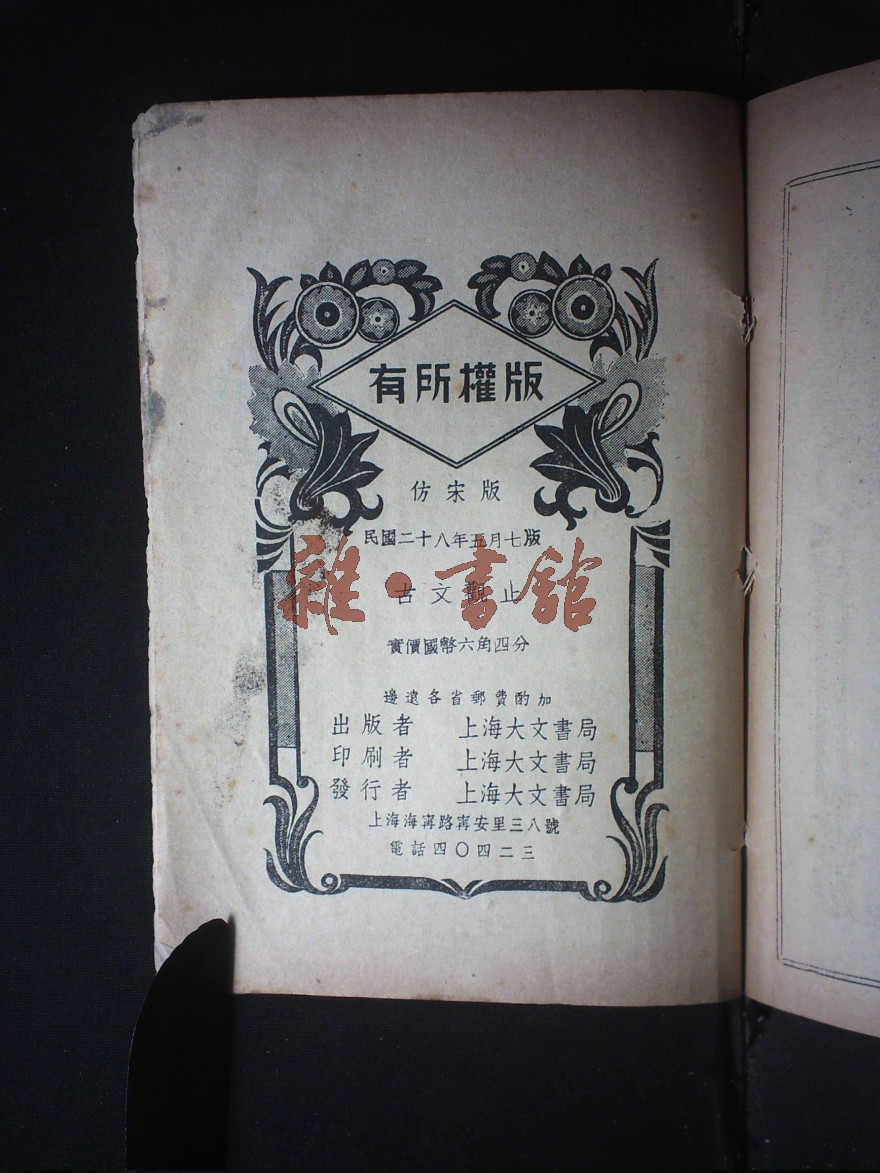 有所權版
仿宋版
民國二十八年五月七版
古文觀止
雜·書館
實價國幣六角四分
邊遠各省郵費酌加
出版者 上海大文書局
印刷者 上海大文書局
發行者 上海大文書局
上海海寗路寗安里三八號
電話四〇四二三